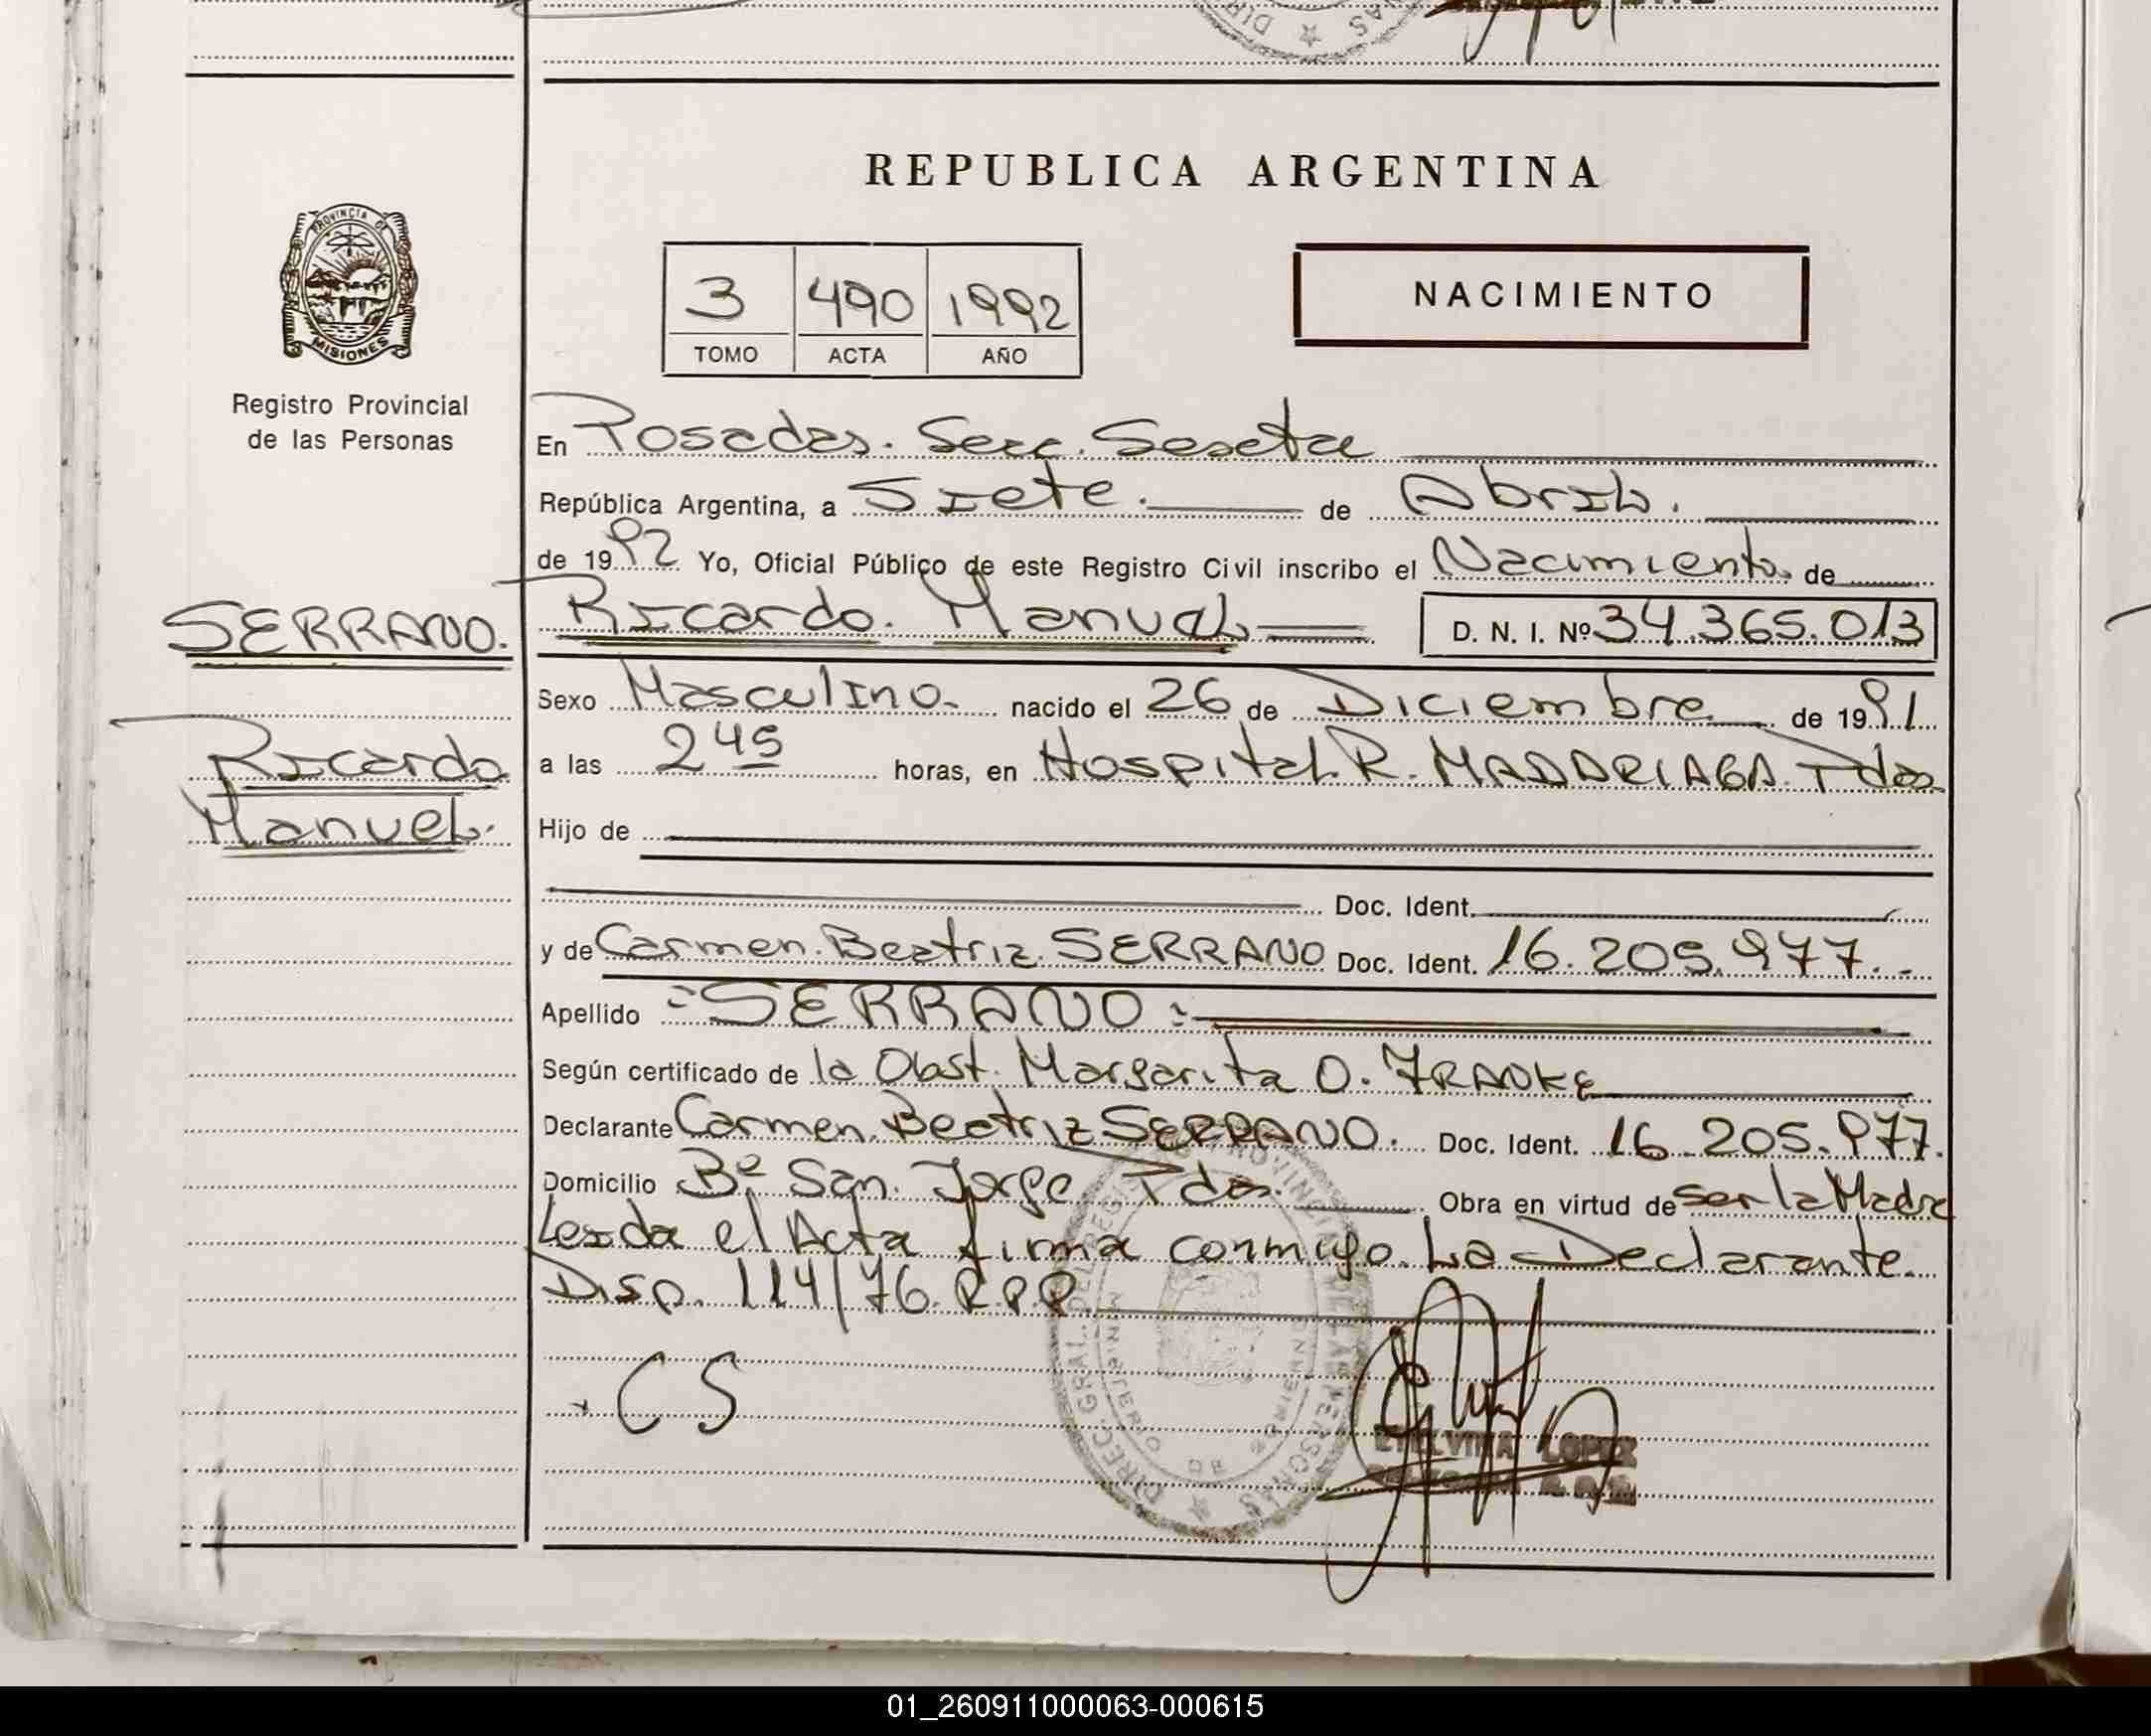 REPUBLICA ARGENTINA
PROVINCIA DE
MISIONES
Registro Provincial
de las Personas
3 490 1992
TOMO ACTA AÑO
NACIMIENTO
En Posadas. Secc. Sexta
República Argentina, a Siete. de Abril.
de 1992 Yo, Oficial Público de este Registro Civil inscribo el Nacimiento de
SERRANO. Ricardo. Manuel D. N. I. Nº 34.365.013
Sexo Masculino. nacido el 26 de Diciembre de 1991
Ricardo
Manuel.
a las 2 45 horas, en Hospital. R. MADARIAGA. Pdas.
Hijo de
Doc. Ident.
y de Carmen. Beatriz. SERRANO Doc. Ident. 16.205.977.-
Apellido =SERRANO=
Según certificado de la Obst. Margarita O. FRANKE
Declarante Carmen. Beatriz SERRANO. Doc. Ident. 16.205.977.
Domicilio Bº San. Jorge Pdas. Obra en virtud de ser la Madre
Leida el Acta firma conmigo. La Declarante.
Disp. 114/76. R.P.P.
C S
DIREC. GRAL. DEL REGISTRO PROVINCIAL DE LAS PERSONAS
MINISTERIO DE GOBIERNO
ETELVINA LOPEZ
01_260911000063-000615